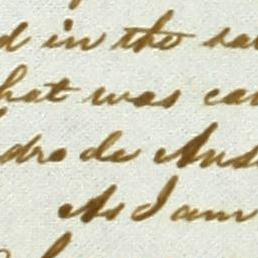 d in the sa
hat was ca
dro de Aus
As I am